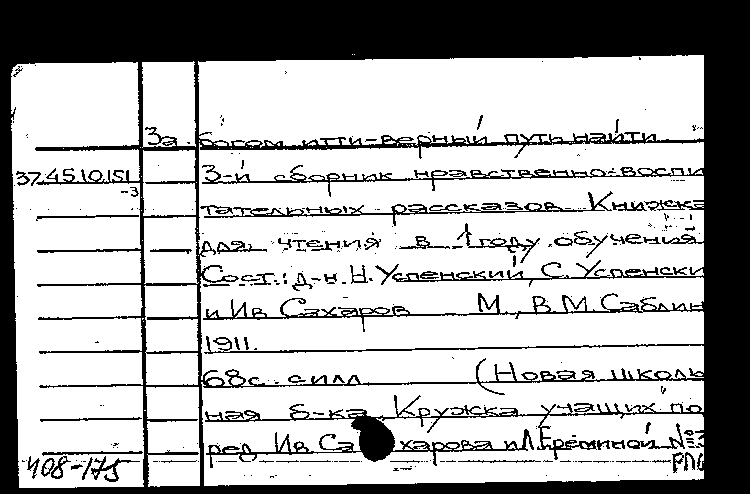 За богом итти-верный путь найти
37.45.10.151 3-й сборник нравственно-воспи
-3
тательных рассказов. Книжка
для чтения в 1 году обучения
Сост.: д-н. Н. Успенский, С. Успенски
и Ив Сахаров М., В.М. Саблин
1911.
68с. с илл (Новая школь
ная б-ка Кружка учащих по
ред Ив Сахарова и Л. Ереминой №3
408-175